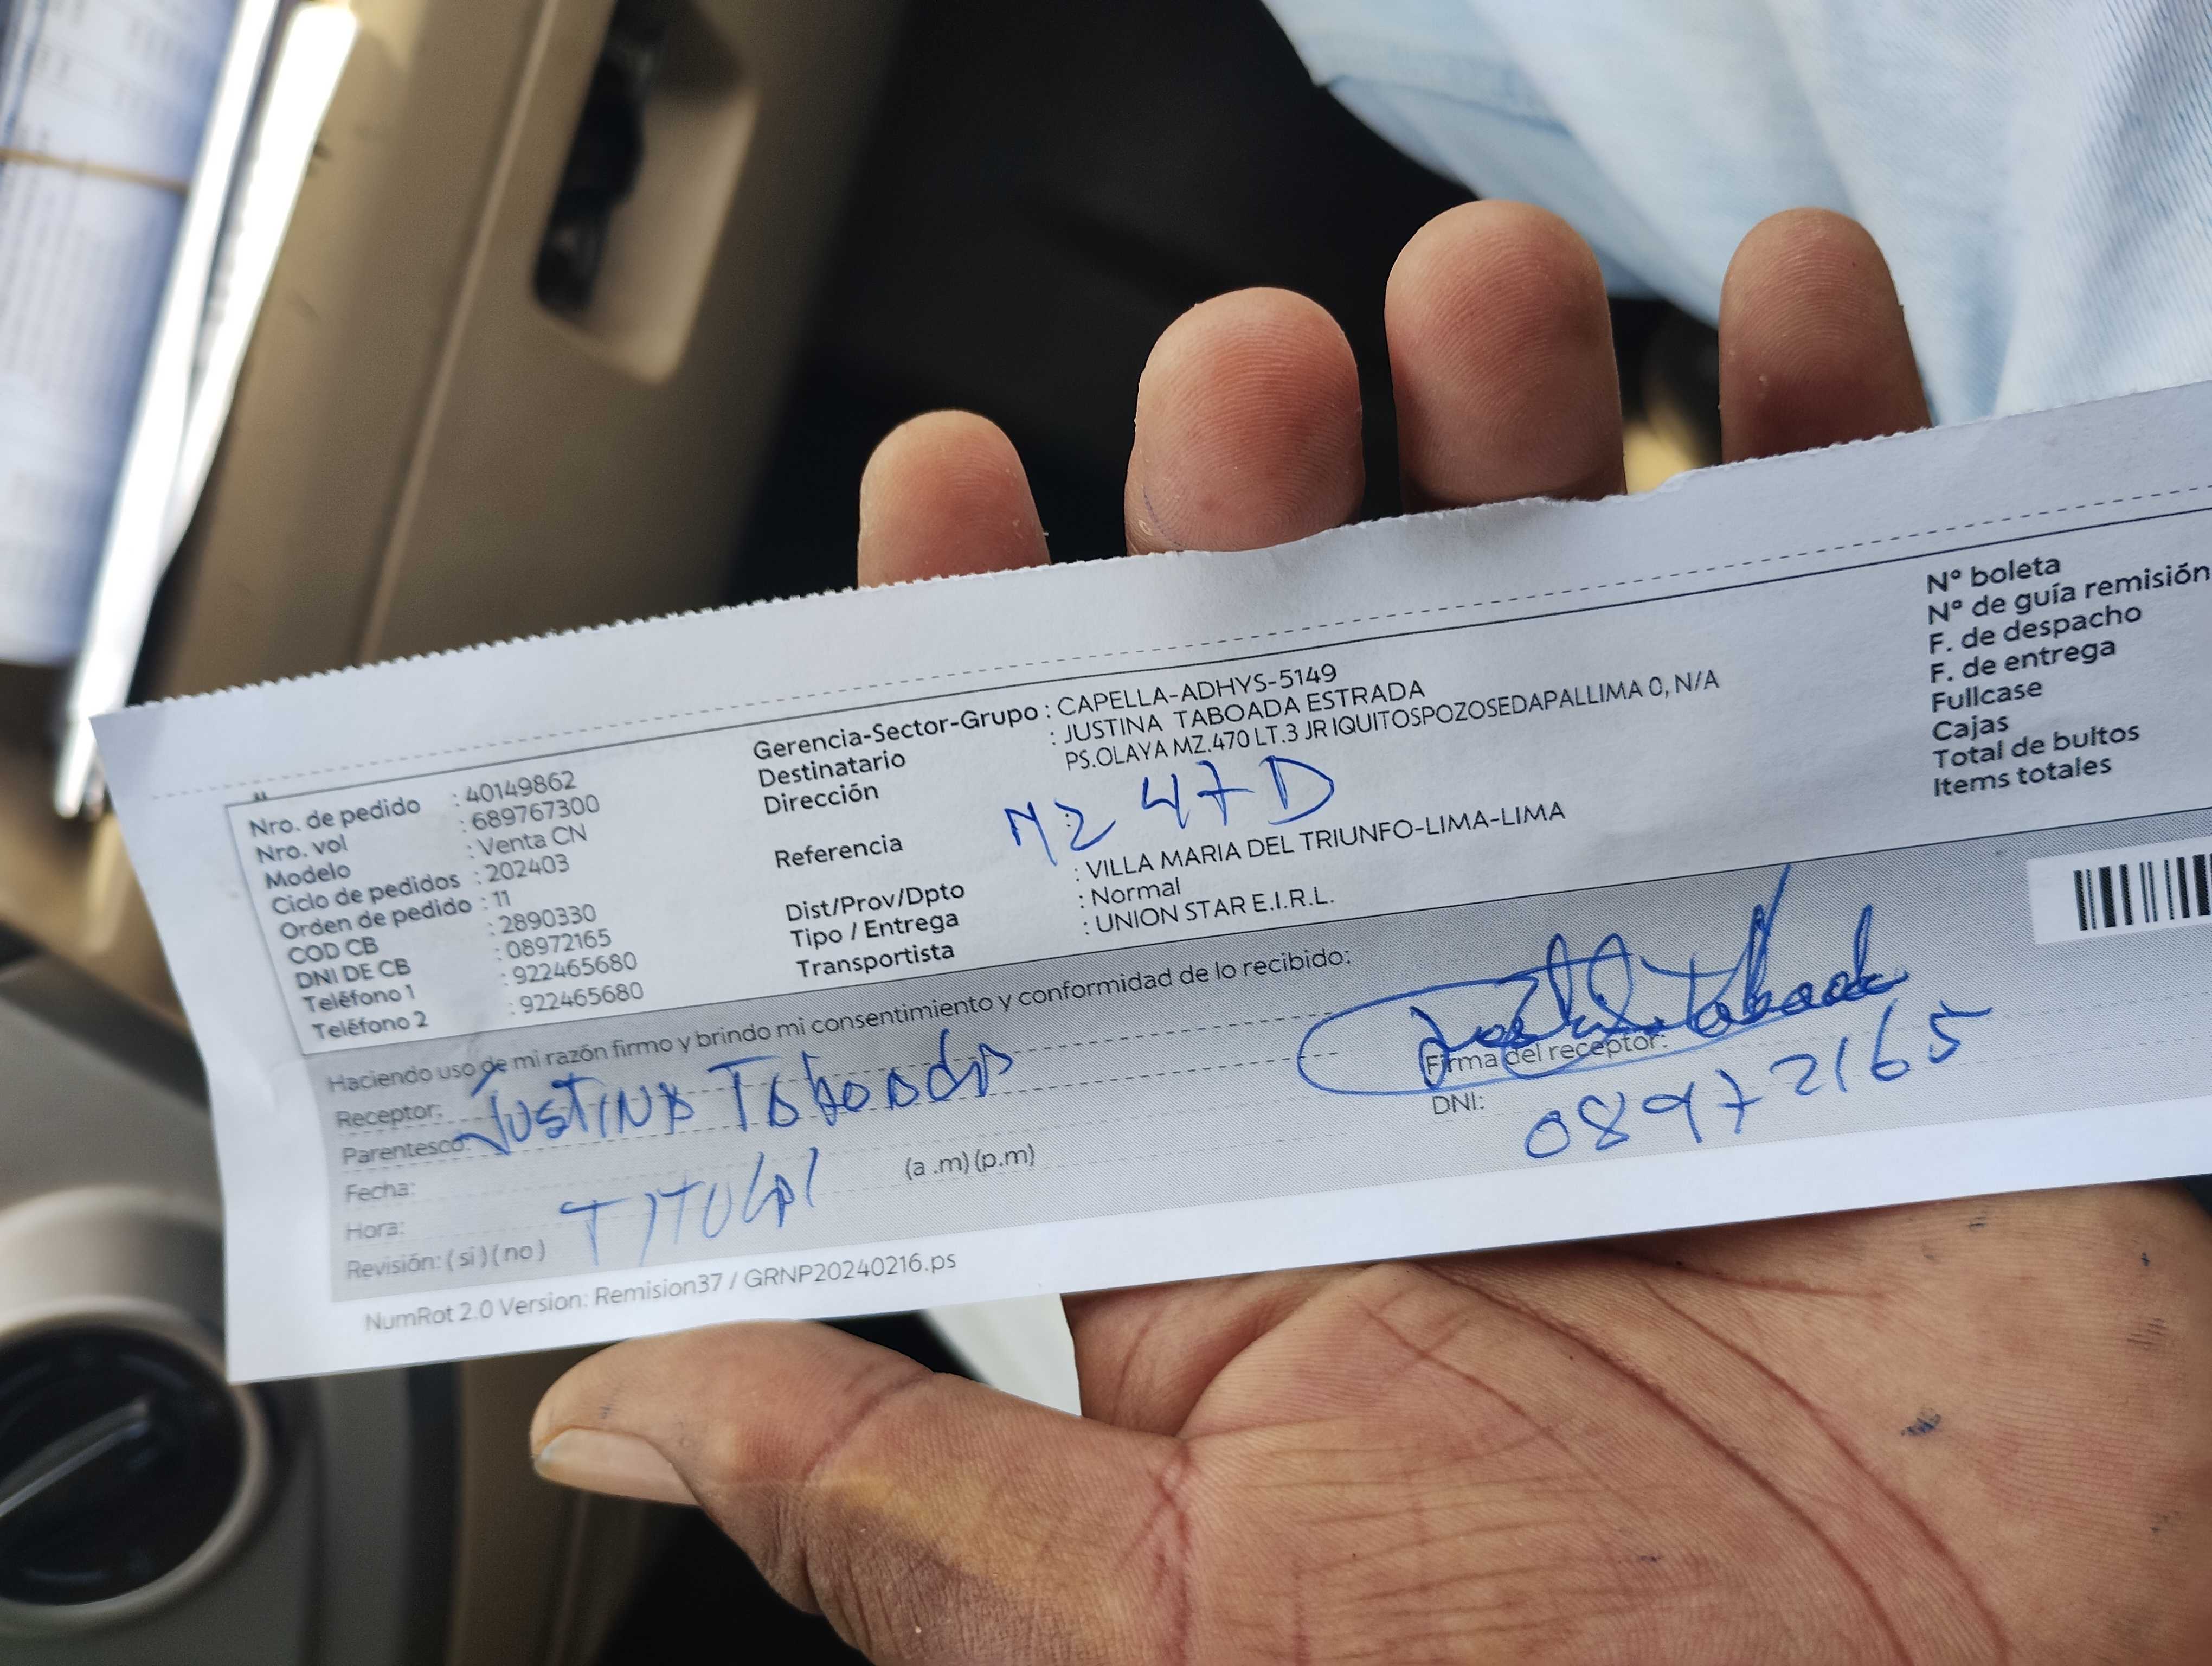 Nro. de pedido : 40149862
Nro. vol : 689767300
Modelo : Venta CN
Ciclo de pedidos : 202403
Orden de pedido : 11
COD CB : 2890330
DNI DE CB : 08972165
Teléfono 1 : 922465680
Teléfono 2 : 922465680
Gerencia-Sector-Grupo : CAPELLA-ADHYS-5149
Destinatario : JUSTINA TABOADA ESTRADA
Dirección PS.OLAYA MZ.470 LT.3 JR IQUITOSPOZOSEDAPALLIMA 0, N/A
Referencia : MZ 47D
Dist/Prov/Dpto : VILLA MARIA DEL TRIUNFO-LIMA-LIMA
Tipo / Entrega : Normal
Transportista : UNION STAR E.I.R.L.
Nº boleta
Nº de guía remisión
F. de despacho
F. de entrega
Fullcase
Cajas
Total de bultos
Items totales
Haciendo uso de mi razón firmo y brindo mi consentimiento y conformidad de lo recibido:
Receptor: JUSTINA Taboada
Parentesco:
Fecha:
Hora: TITULAR (a .m) (p.m)
Revisión: ( si ) ( no )
Taboada
Firma del receptor:
DNI: 08972165
NumRot 2.0 Version: Remision37 / GRNP20240216.ps